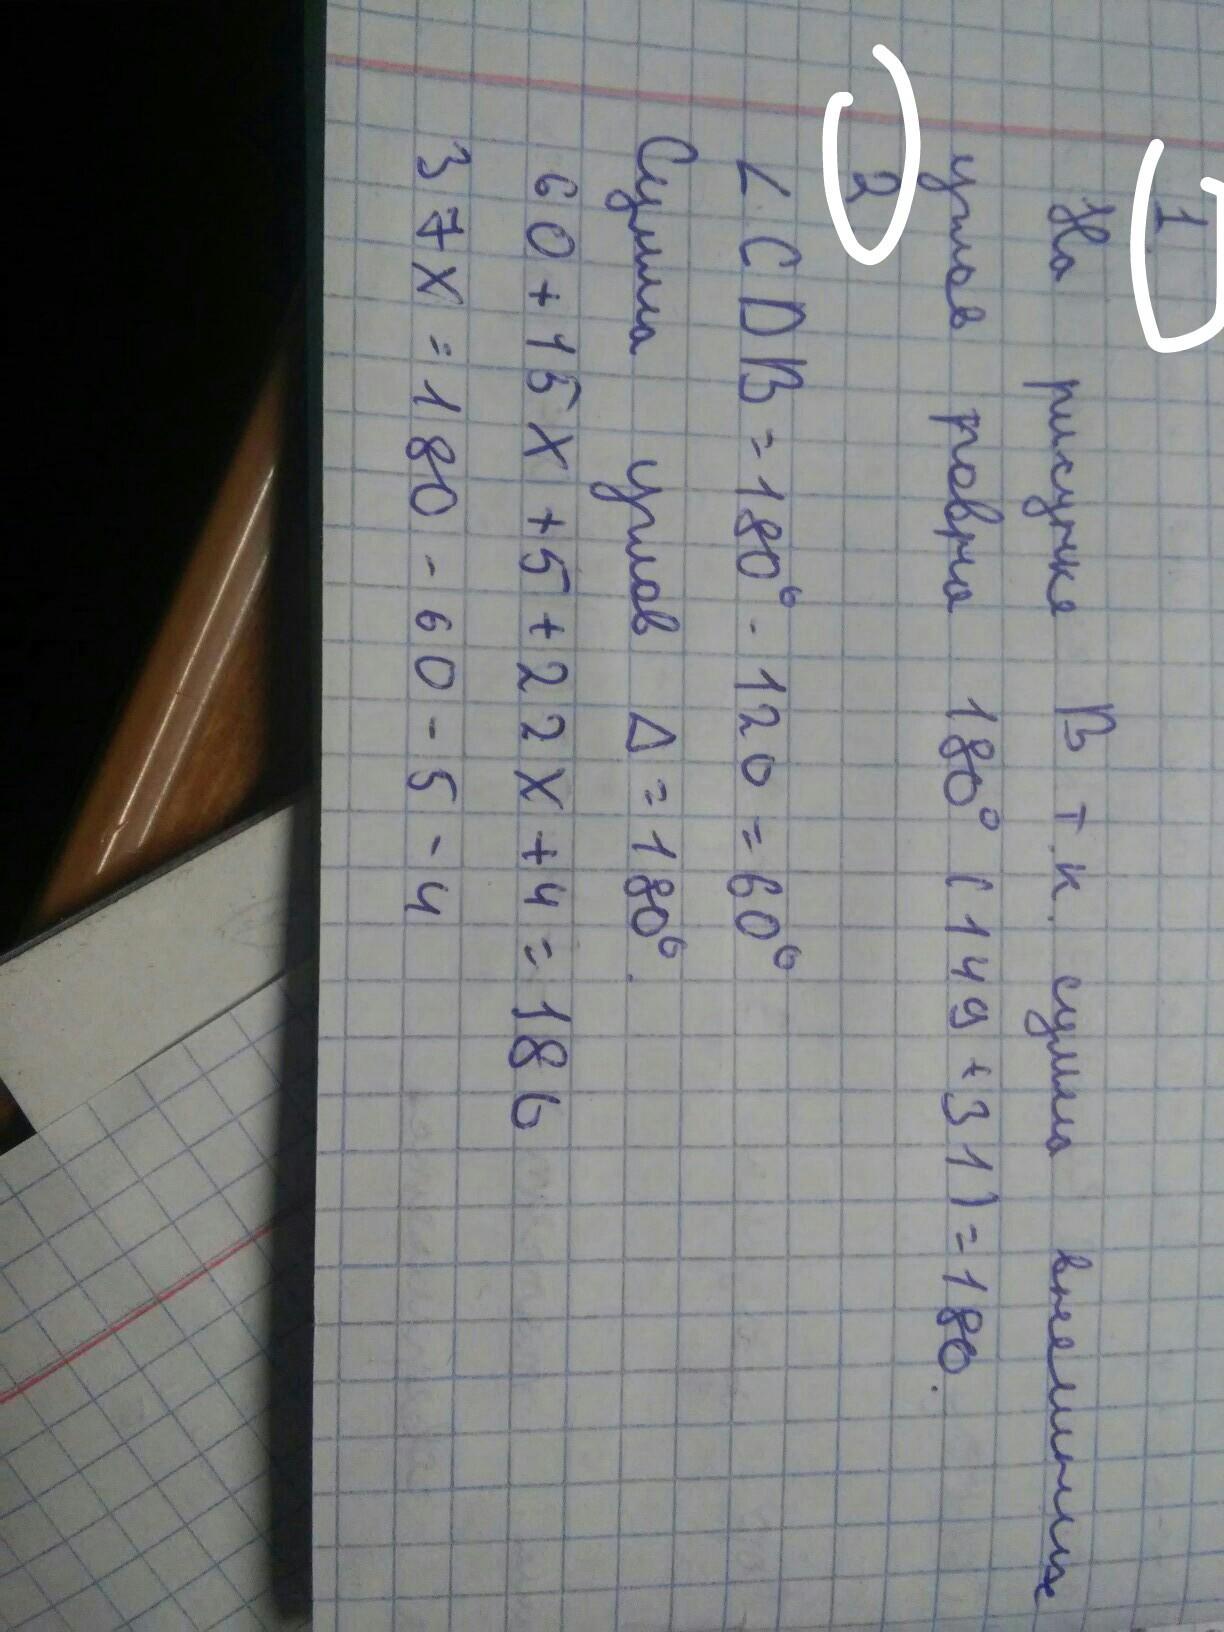 1.
На рисунке В т.к. сумма внешнних
углов равна 180° (149+31)=180.
2
∠CDB=180°-120=60°
Сумма углов Δ=180°.
60+15x+5+22x+4=186
37x=180-60-5-4